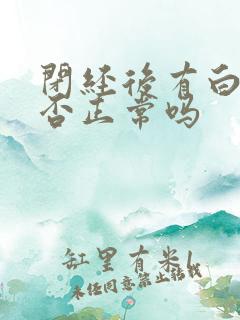 閉经後有白
否正常吗
缸里有米l
未经同意禁止转载